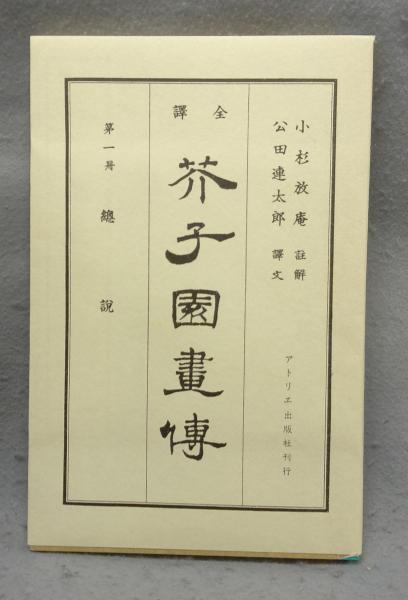 小杉放庵 註解
公田連太郎 譯文
アトリエ出版社刊行
全譯
芥子園畫傳
第一册 總說